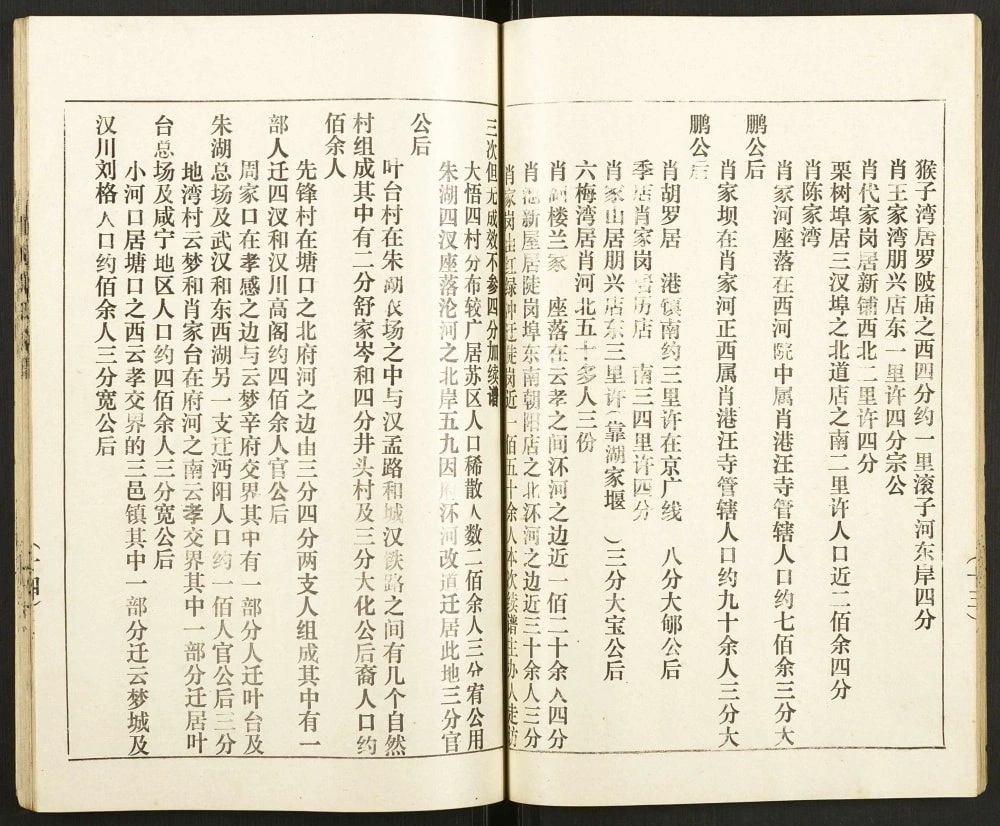 猴子湾居罗陂庙之西四分约一里滚子河东岸四分
肖王家湾朋兴店东一里许四分宗公
肖代家岗居新铺西北二里许四分
栗树埠居三汊埠之北道店之南二里许人口近二佰余四分
肖陈家湾
肖家河座落在西河院中属肖港汪寺管辖人口约七佰余三分大
鹏公后
肖家坝在肖家河正西属肖港汪寺管辖人口约九十余人三分大
鹏公后
肖胡罗居 港镇南约三里许在京广线 八分大郇公后
季店肖家岗 店 南三四里许四分
肖家山居朋兴店东三里许(靠湖家堰 )三分大宝公后
六梅湾居肖河北五十多人三份
肖 楼兰家 座落在云孝之间沶河之边近一佰二十余人四分
肖 新屋居陡岗埠东南朝阳店之北沶河之边近三十余人三分
肖家岗出红绿冲迁陡岗近一佰五十余人本次续谱主办人走访
三次但无成效不参四分加续谱
大悟四村分布较广居苏区人口稀散人数二佰余人三分宥公用
朱湖四汊座落沦河之北岸五九因府沶河改道迁居此地三分官
公后
叶台村在朱湖农场之中与汉孟路和城汉铁路之间有几个自然
村组成其中有二分舒家岑和四分井头村及三分大化公后裔人口约
佰余人
先锋村在塘口之北府河之边由三分四分两支人组成其中有一
部人迁四汊和汉川高阁约四佰余人官公后
周家口在孝感之边与云梦辛府交界其中有一部分人迁叶台及
朱湖总场及武汉和东西湖另一支迁沔阳人口约一佰人官公后三分
地湾村云梦和肖家台在府河之南云孝交界其中一部分迁居叶
台总场及咸宁地区人口约四佰余人三分宽公后
小河口居塘口之西云孝交界的三邑镇其中一部分迁云梦城及
汉川刘格人口约佰余人三分宽公后
(十三)
(十四)